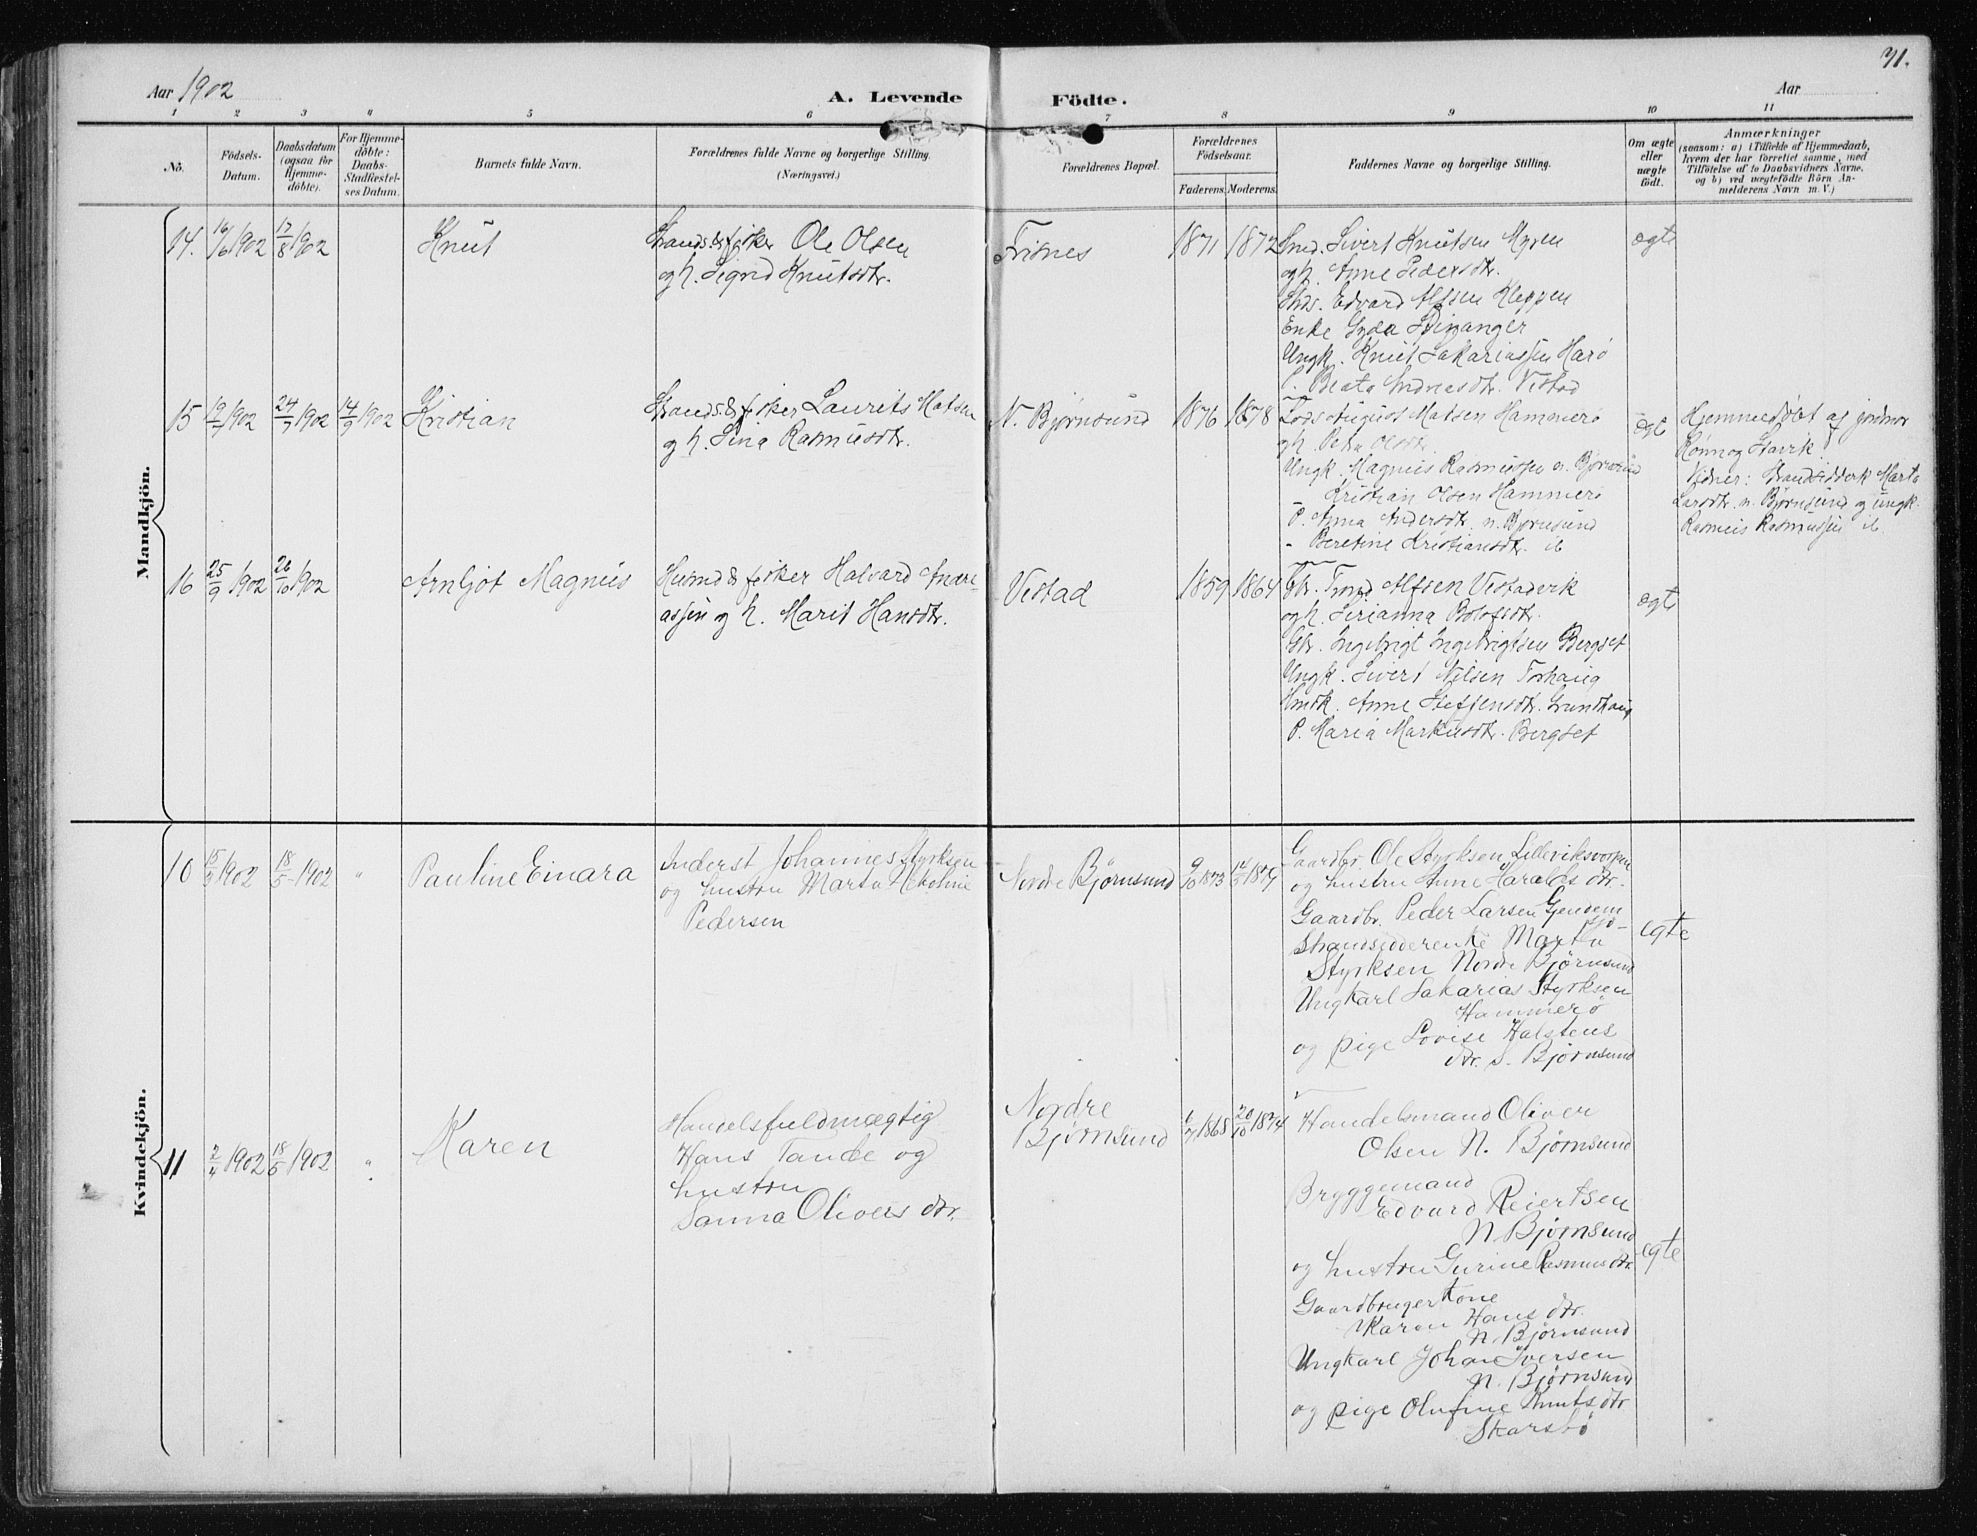 31.
Aar 1902
A. Levende Födte.
Aar
1 2 3 " 5 6 7 8 9 10 11
No.
Födsels-Datum.
Daabsdatum (ogsaa for Hjemme-döbte).
For Hjemme-döbte: Daabs-Stadfæstel-ses Datum.
Barnets fulde Navn.
Forældrenes fulde Navne og borgerlige Stilling. (Næringsvei.)
Forældrenes Bopæl.
Forældrenes Födselsaar.
Faderens. Moderens.
Faddernes Navne og borgerlige Stilling.
Om ægte eller uægte födt.
Anmærkninger
(saasom: a) i Tilfælde af Hjemmedaab,
hvem der har forrettet samme, med
Tilföielse af to Daabsvidners Navne,
og b) ved uægtefödte Börn An-
melderens Navn m. V.)
Mandkjön.
14. 16/6 1902 17/8 1902 Knut
Strands. & fisker Ole Olsen
og h. Sigrid Knutsdtr.
Trisnes 1871 1872
Smd. Sivert Knutsen Myren
og h. Anne Pedersdtr.
Edvard Alfsen Kleppen
Enke Gyda
Ungk. Knut Sakariassen Harø
P. Beata Andreasdtr. Vestad
ægte
15 1902 24/7 1902 14/9 1902 Kristian
Strands. & fisker Laurits Matsen
og h. Sina Rasmusdtr.
N. Bjørnsund 1876 1878
Lods August Matsen Hammerø
og h. Petra Olsdtr.
Ungk. Magnus Rasmussen n. Bjørnsund
- Kristian Olsen Hammerø
P. Anna Andersdtr. n. Bjørnsund
- Beretine Kristiansdtr. ib
ægte
Hjemmedøbt af jordmor
Rønnog Stavik
Vidner: Strandsidderk Marta
Larsdtr. n. Bjørnsund og ungk.
Rasmus Rasmussen ib
16 25/9 1902 26/10 1902 Arnljot Magnus
Husmd & fisker Halvard Andre-
assen og h. Marit Hansdtr.
Vestad 1859 1864
Gbr. Trond Alfsen Vestadvik
og h. Serianna
Gbr. Ingebrigt Ingebrigtsen Bergset
Ungk. Sivert Nilsen Torhaug
Hmdk. Anne Steffensdtr. Grundhaug
P. Maria Markusdtr. Bergset
ægte
Kvindekjön.
10 15/3 1902 18/5 1902 " Pauline Einara
Inderst Johannes Styrksen
og hustru Marta Nekoline
Pedersen
Nordre Bjørnsund 9/10 1873
Gaardbr. Ole Styrksen Lilleviksvorpen
og hustru Anne Haralds dtr.
Gaardbr. Peder Larsen Gjendem
Strandsidderenke Marta
Styrksen Nordre Bjørnsund
Ungkarl Sakarias Styrksen
Hammerø
og pige Lovise Halstens
dtr. S. Bjørnsund
egte
11 2/4 1902 18/5 1902 " Karen
Handelsfuldmægtig
Hans Tande og
hustru
Sanna Olivers dtr.
Nordre
Bjørnsund
6/7 1868 20/10 1874
Handelsmand Oliver
Olsen N. Bjørnsund
Bryggemand
Edvard Reiertsen
N. Bjørnsund
og hustru Gurine Rasmusdtr.
Gaardbrugerkone
Karen Hans dtr.
N. Bjørnsund
Ungkarl Johan Iversen
N. Bjørnsund
og pige Olufine Knutsdtr
Skarsbø
egte